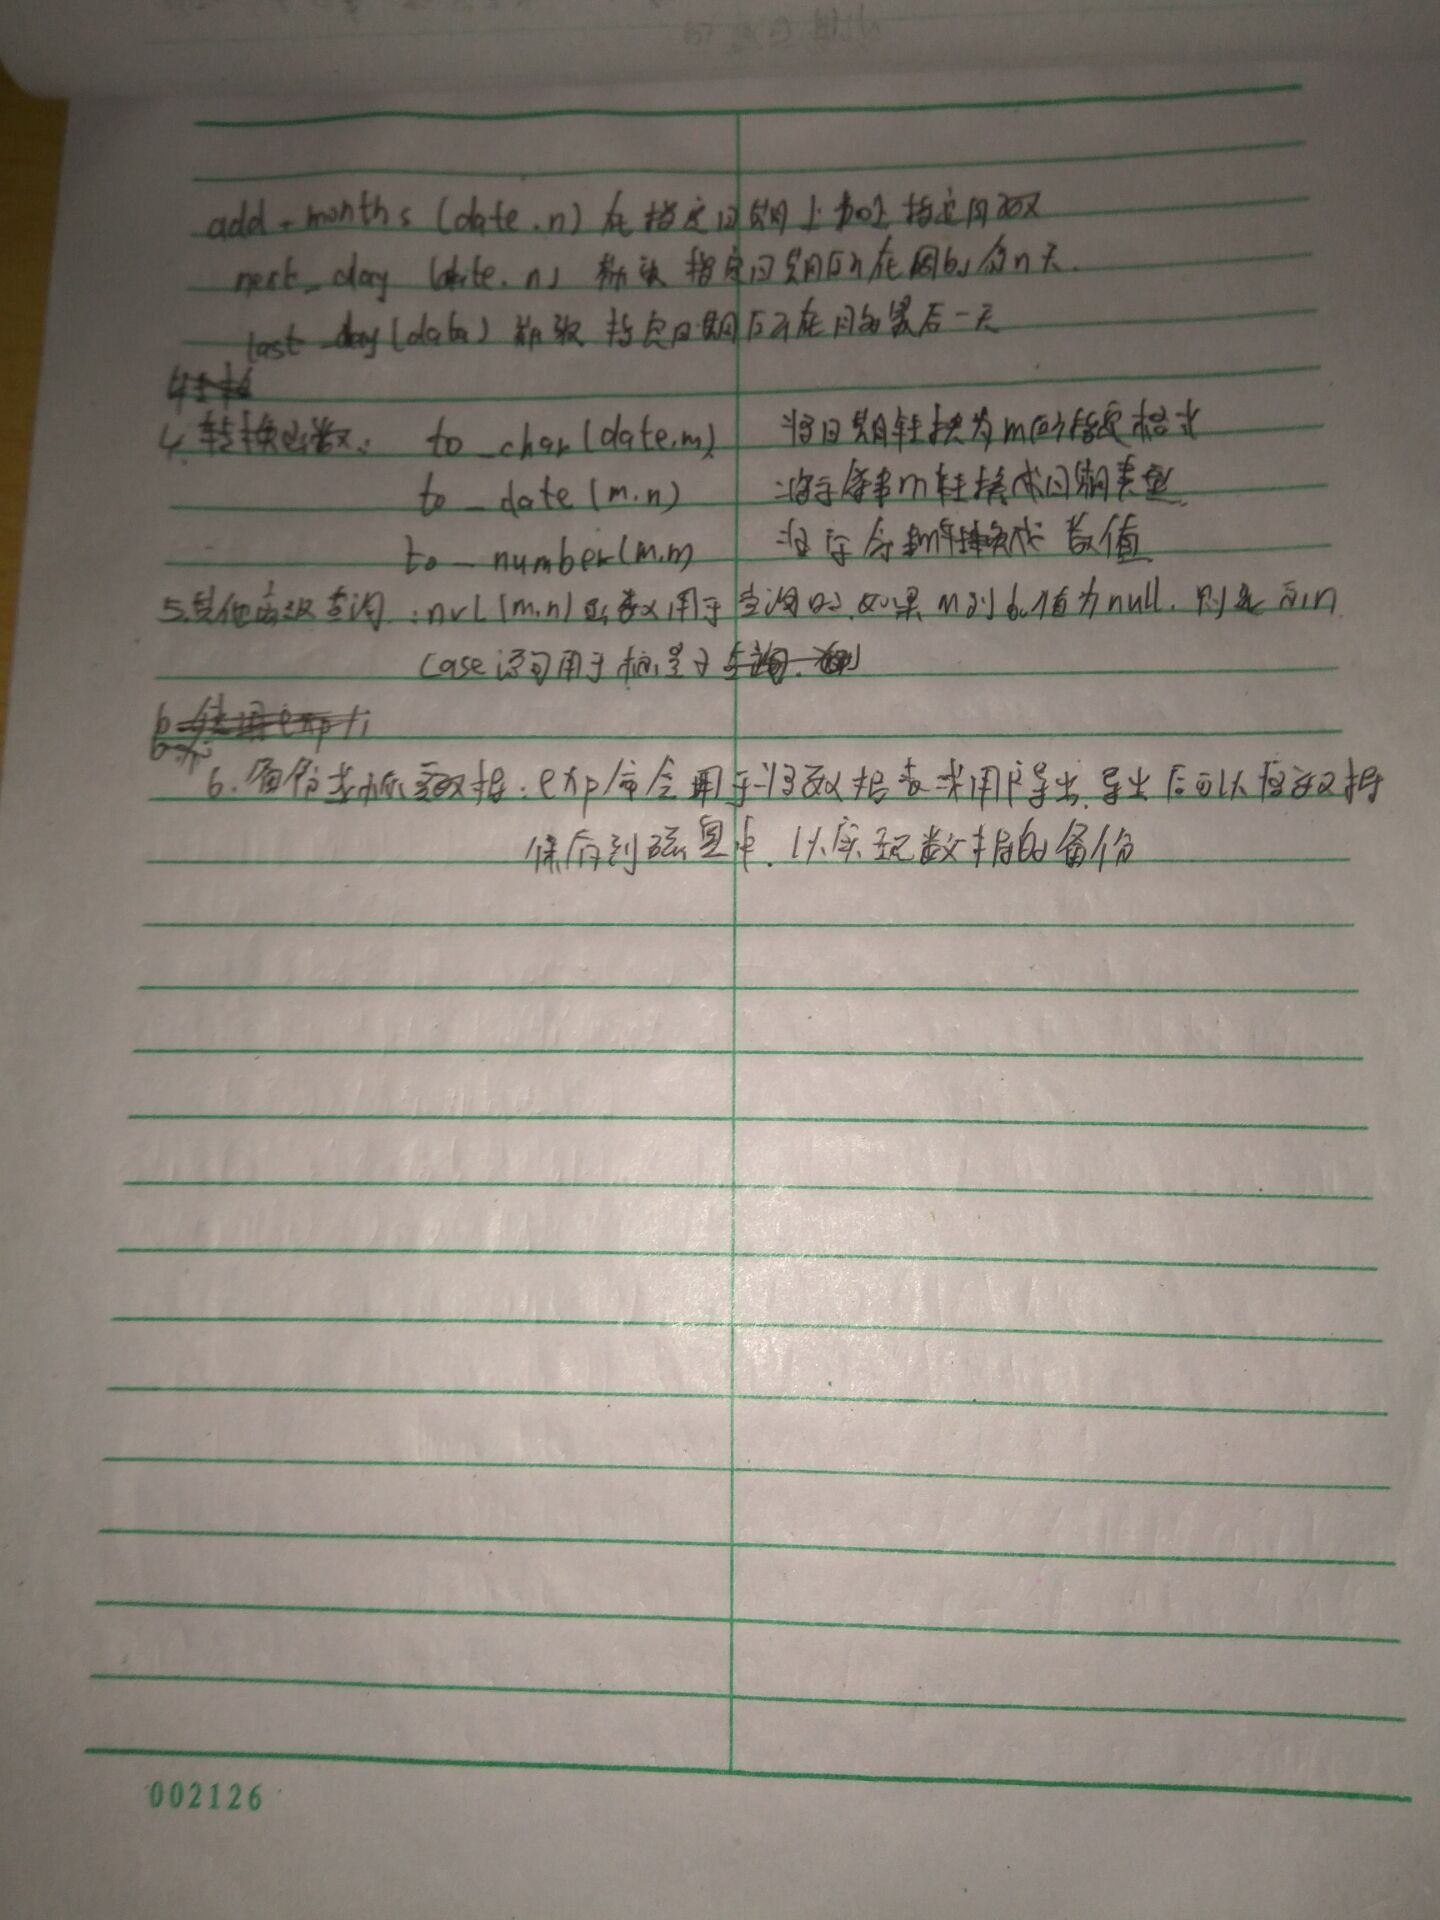 add-months (date.n) 在指定日期上加上指定月数
next_day (date.n) 获取指定日期所在周的第n天.
last_day(data) 获取指定日期所在月的最后一天
4.转换函数: to_char(date.m) 将日期转换为m的指定格式
to_date(m.n) 将字符串m转换成日期类型
to_number(m.m) 将字符串m转换成数值
5.其他高级查询:nvl(m.n)函数用于查询时.如果m列的值为null.则显示n
case语句用于
6.备份 数据:exp命令用于将数据表或用户导出.导出后可以将数据
保存到磁盘中.以实现数据的备份
002126